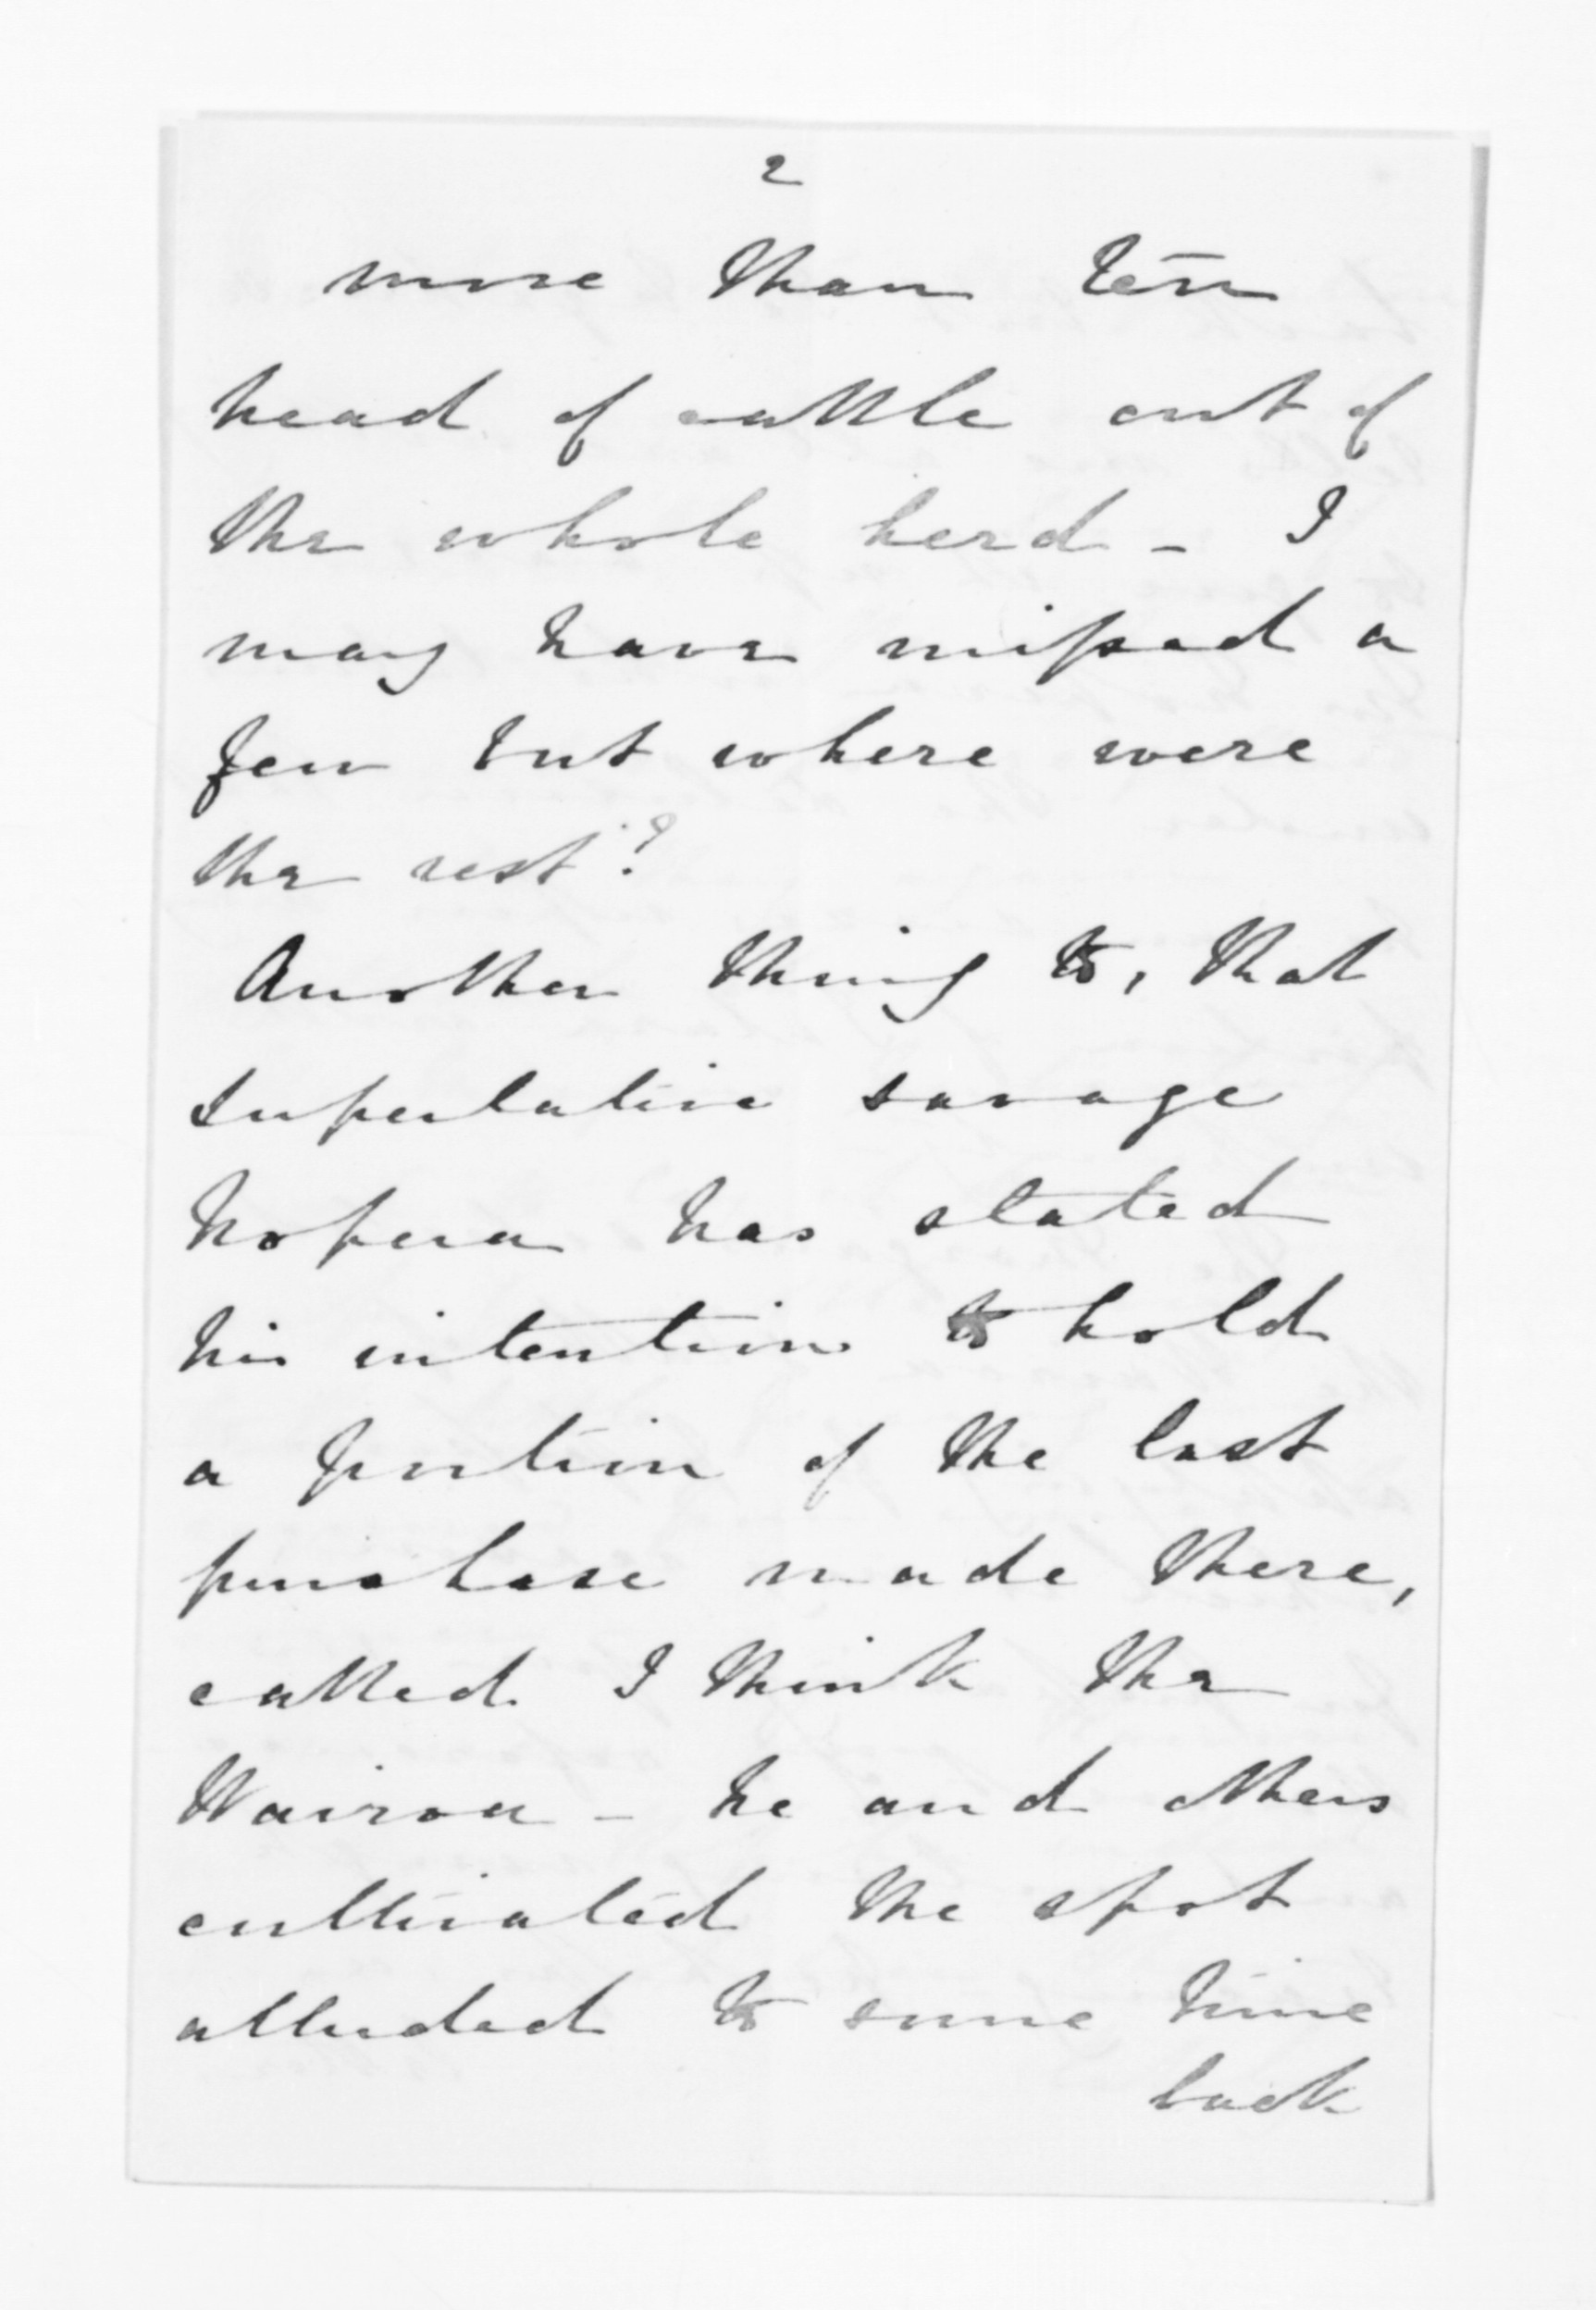 2
more than ten
head of cattle out of
the whole herd - I
may have missed a
few but where were
the rest?
Another thing to, that
superlative savage
Hopera has stated
his intention to hold
a portion of the last
purchase made there,
called I think the
Wairoa - he and others
cultivated the spot
alluded to some time
back